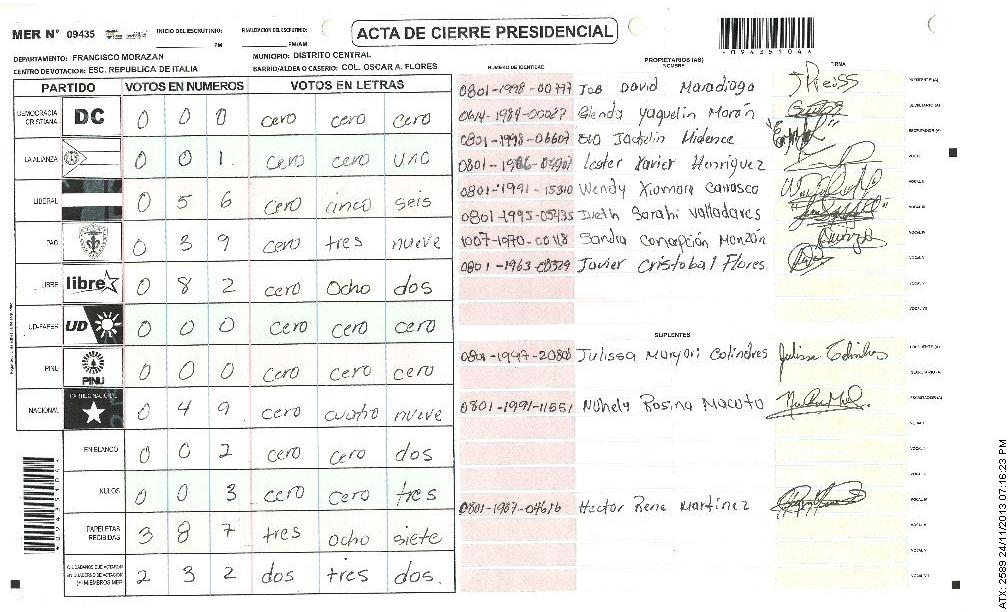 MER N° 09435
INICIO DEL ESCRUTINIO:
PM
FINALIZACION DEL ESCRUTINIO:
PM/AM
ACTA DE CIERRE PRESIDENCIAL
094351044
DEPARTAMENTO: FRANCISCO MORAZAN
MUNICIPIO: DISTRITO CENTRAL
CENTRO DE VOTACION: ESC. REPUBLICA DE ITALIA
BARRIO/ALDEA O CASERIO: COL. OSCAR A. FLORES
PARTIDO VOTOS EN NUMEROS VOTOS EN LETRAS
DEMOCRACIA CRISTIANA DC 0 0 0 cero cero cero
LA ALIANZA 0 0 1. cero cero uno
LIBERAL 0 5 6 cero cinco seis
PAC 0 3 9 cero tres nueve
LIBRE libre 0 8 2 cero ocho dos
UD-FAPER UD 0 0 0 cero cero cero
PINU PINU 0 0 0 cero cero cero
NACIONAL PARTIDO NACIONAL 0 4 9 cero cuatro nueve
EN BLANCO 0 0 2 cero cero dos
NULOS 0 0 3 cero cero tres
PAPELETAS RECIBIDAS 3 8 7 tres ocho siete
CIUDADANOS QUE VOTARON
EN CUADERNO DE VOTACION
(+) MIEMBROS MER 2 3 2 dos tres dos.
NUMERO DE IDENTIDAD
PROPIETARIOS (AS)
NOMBRE
FIRMA
0801-1998-00777 Job David Maradiaga
0614-1989-00027 Glenda Yaquelin Morán
0801-1998-06607 Eva Jackelin Midence
Lester Xavier Henriquez
0801-1991-15310 Wendy Xiomara Carrasco
0801-1995-05435 Iveth Sarahi Valladares
1007-1970-00118 Sandra Concepción Monzón
0801-1963-03329 Javier Cristobal Flores
SUPLENTES
Julissa Maryori Colindres
0801-1991-11551 Nohely Rosina Macoto
0801-1987-04616 Hector Rene Martinez
ATX: 2589 24/11/2013 07:16:23 PM